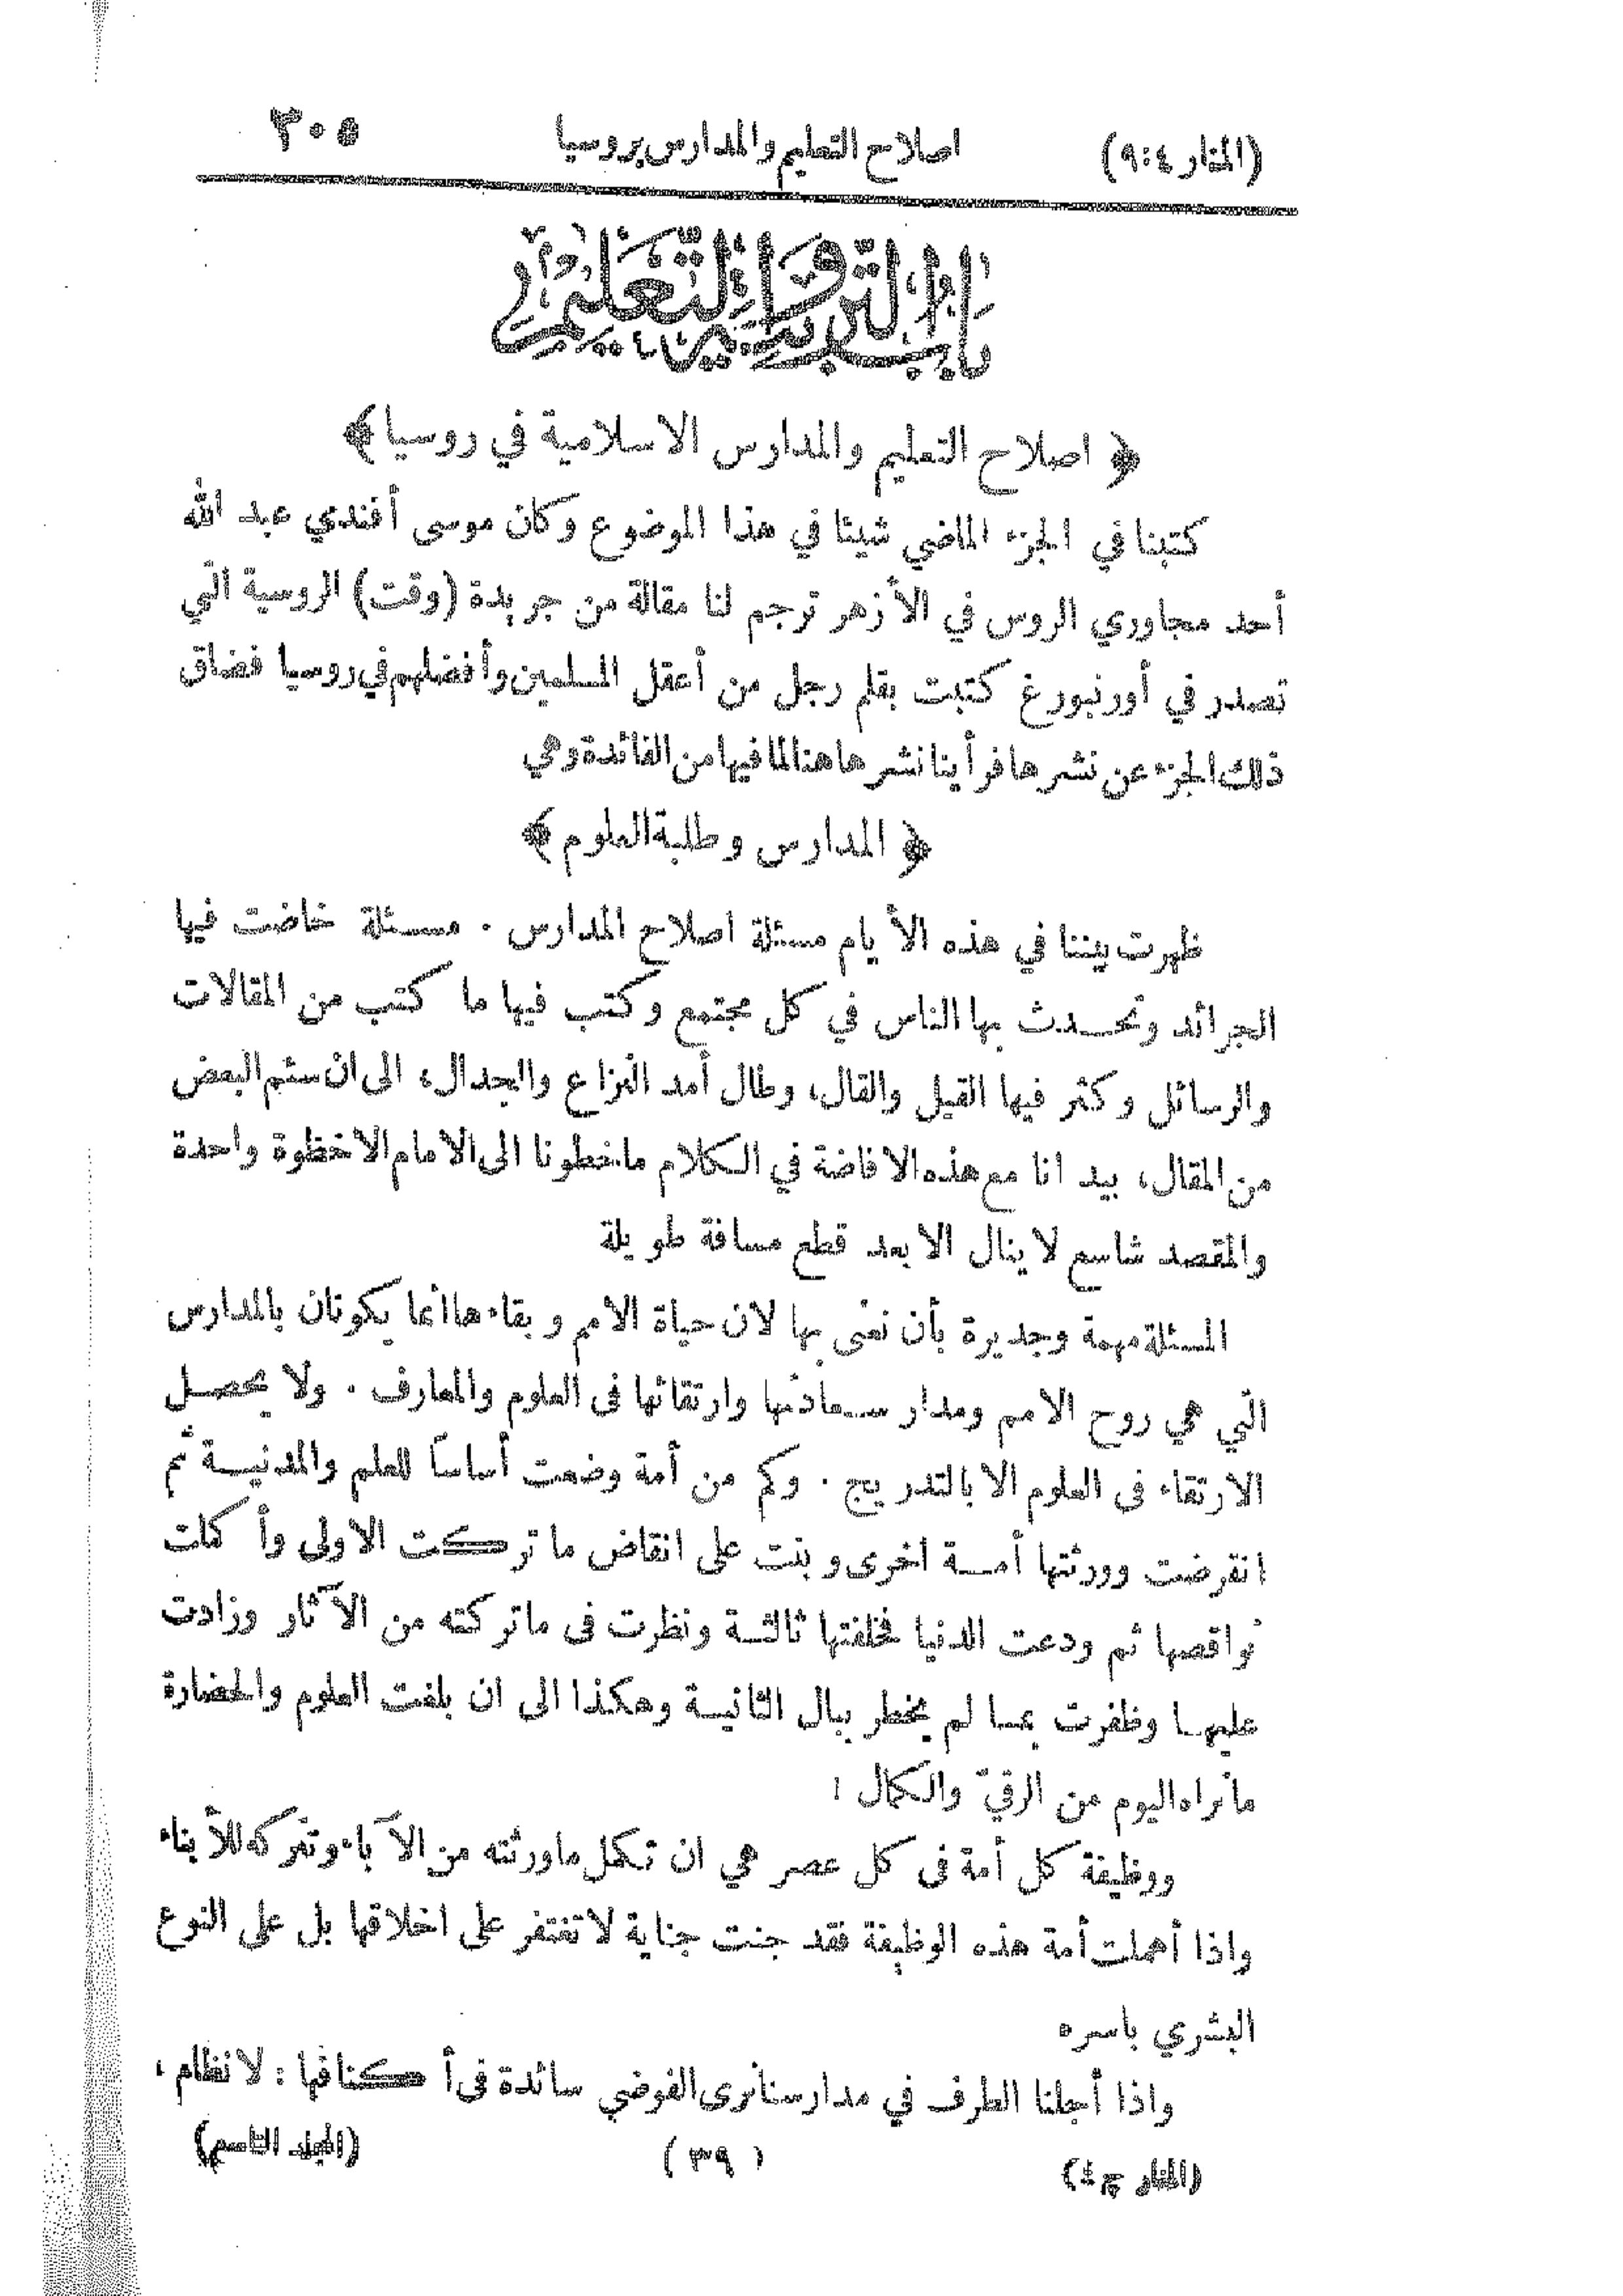 (المنار ٤:٩) اصلاح التعليم والمدارس بروسيا ٣٠٥
باب التربية والتعليم
﴿ اصلاح التعليم والمدارس الاسلامية في روسيا ﴾
كتبنا في الجزء الماضي شيئا في هذا الموضوع وكان موسى أفندي عبد الله
أحد مجاوري الروس في الأزهر ترجم لنا مقالة من جريدة (وقت) الروسية التي
تصدر في أورنبورغ كتبت بقلم رجل من أعقل المسلمين وأفضلهم في روسيا فضاق
ذلك الجزء عن نشرها فرأينا نشرها هنا لما فيها من الفائدة وهي
﴿ المدارس وطلبة العلوم ﴾
ظهرت بيننا في هذه الأيام مسئلة اصلاح المدارس . مسئلة خاضت فيها
الجرائد وتحدث بها الناس في كل مجتمع وكتب فيها ما كتب من المقالات
والرسائل وكثر فيها القيل والقال، وطال أمد النزاع والجدال، الى ان سئم البعض
من المقال، بيد انا مع هذه الافاضة في الكلام ماخطونا الى الامام الاخطوة واحدة
والمقصد شاسع لا ينال الا بعد قطع مسافة طويلة
المسئلة مهمة وجديرة بأن نعنى بها لان حياة الامم وبقاءها انما يكونان بالمدارس
التي هي روح الامم ومدار سعادتها وارتقائها فى العلوم والمعارف . ولا يحصل
الارتقاء فى العلوم الا بالتدريج . وكم من أمة وضعت أساسا للعلم والمدنية ثم
انقرضت وورثتها أمة اخرى وبنت على انقاض ما تركت الاولى وأكملت
نواقصها ثم ودعت الدنيا فخلفتها ثالثة ونظرت فى ماتركته من الآثار وزادت
عليها وظفرت بما لم يخطر ببال الثانية وهكذا الى ان بلغت العلوم والحضارة
مانراه اليوم من الرقيّ والكمال !
ووظيفة كل أمة فى كل عصر هي ان تكمل ماورثته من الآباء وتتركه للأبناء
واذا أهملت أمة هذه الوظيفة فقد جنت جناية لا تغتفر على اخلاقها بل على النوع
البشري باسره
واذا أجلنا الطرف في مدارسنا نرى الفوضي سائدة فى أكنافها : لا نظام ،
(المنار ج ٤) (٣٩) (المجلد التاسع)